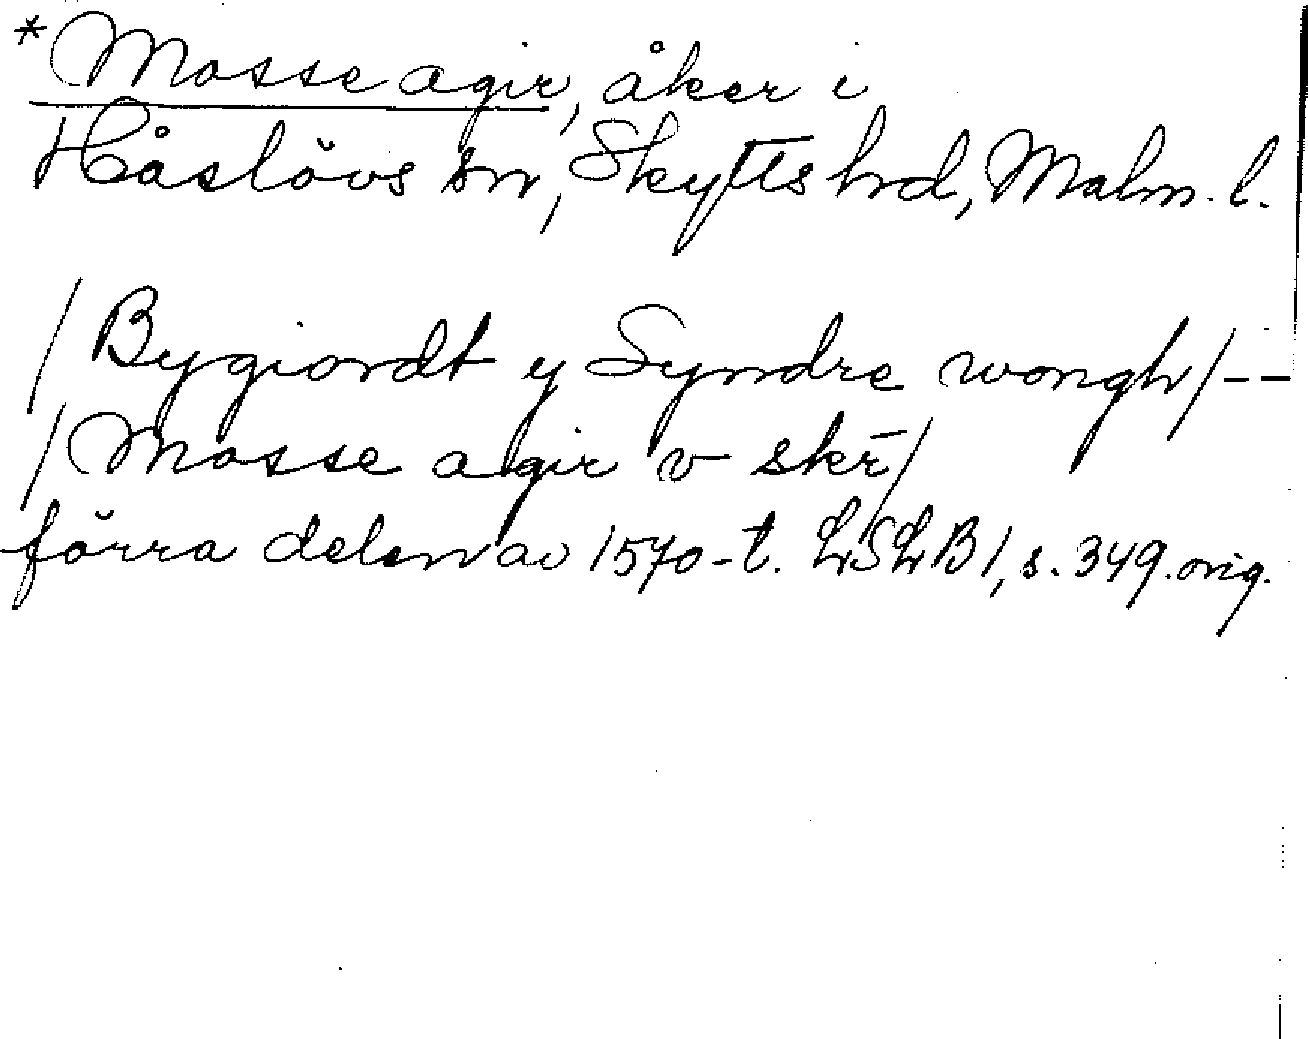 *Mosse agir, åker i
Håslövs sn, Skytts hrd, Malm. l.
/Bygiordt y Syndre wongh/--
/Mosse agir v skr̄/
förra delen av 1570-t. LSLB 1, s. 349. orig.